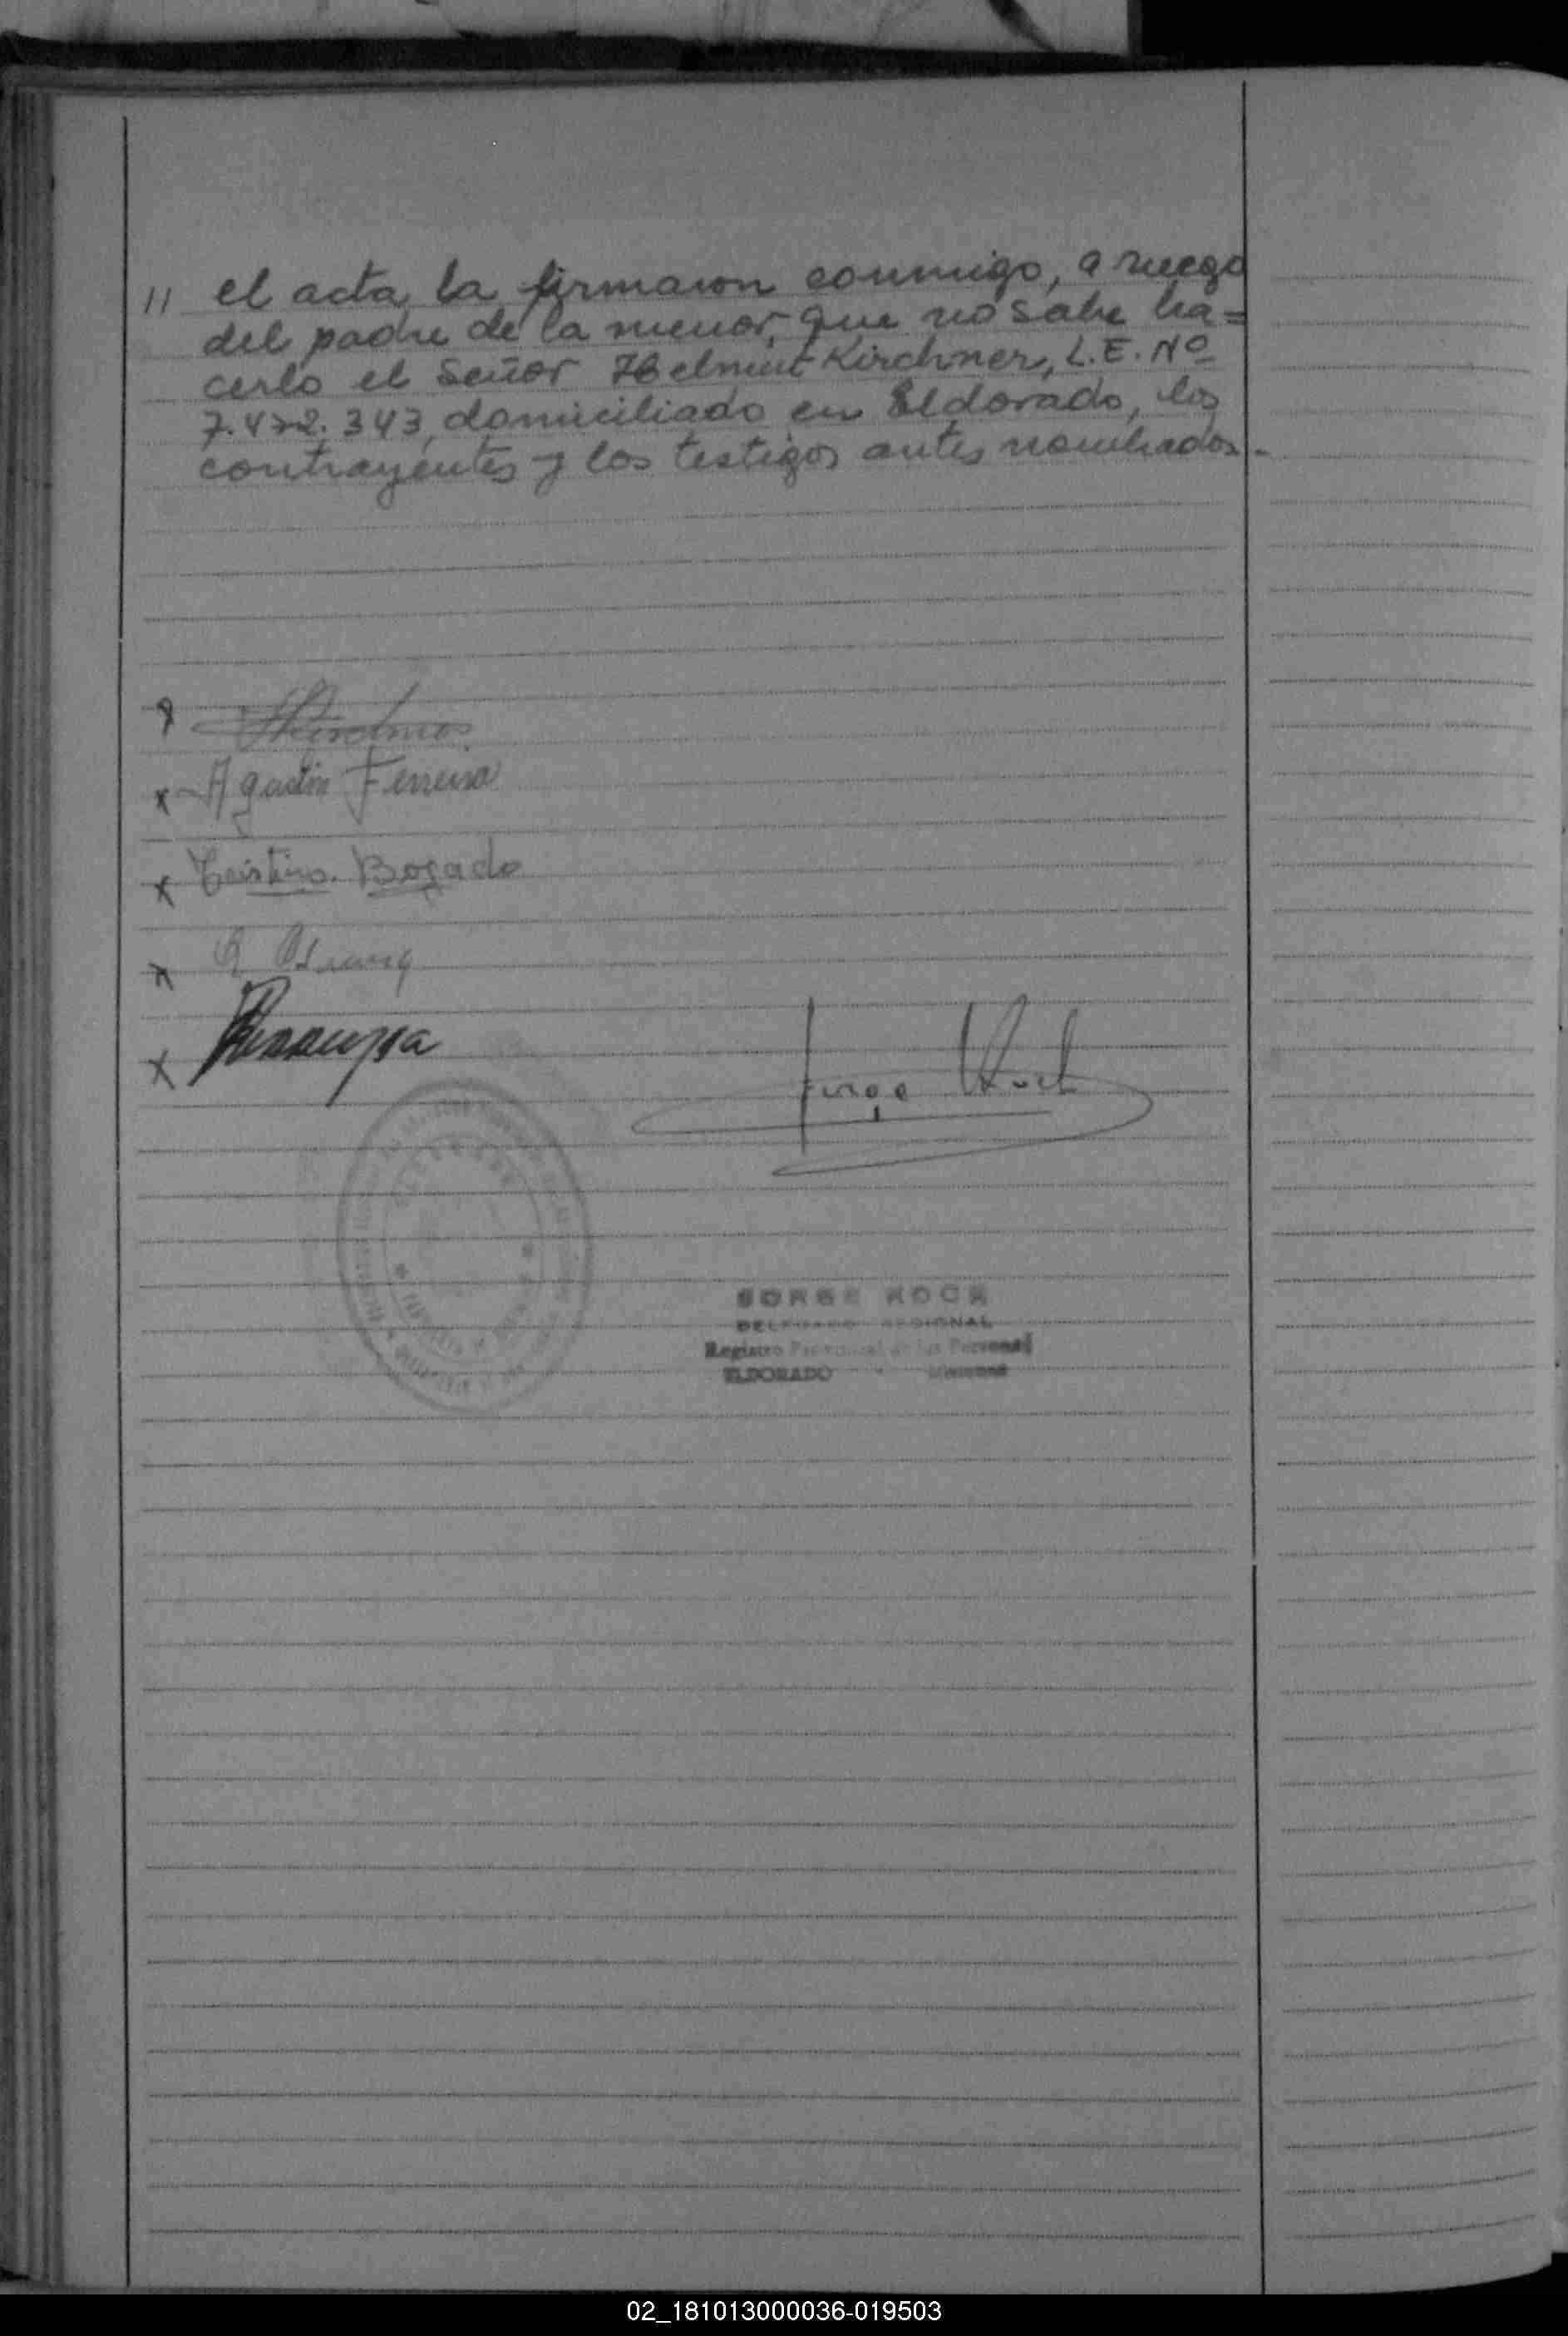 11 el acta, la firmaron conmigo, a ruego
del padre de la menor, que no sabe ha=
cerlo el Señor Helmut Kirchner, L.E. Nº
7.472.343, domiciliado en Eldorado, los
contrayentes y los testigos antes nombrados.-
x Agustin Ferreira
x Cristina Bogado
x
x
Jorge Koch
JORGE KOCH
DELEGADO REGIONAL
Registro Provincial de las Personas
ELDORADO - Misiones
02_181013000036-019503